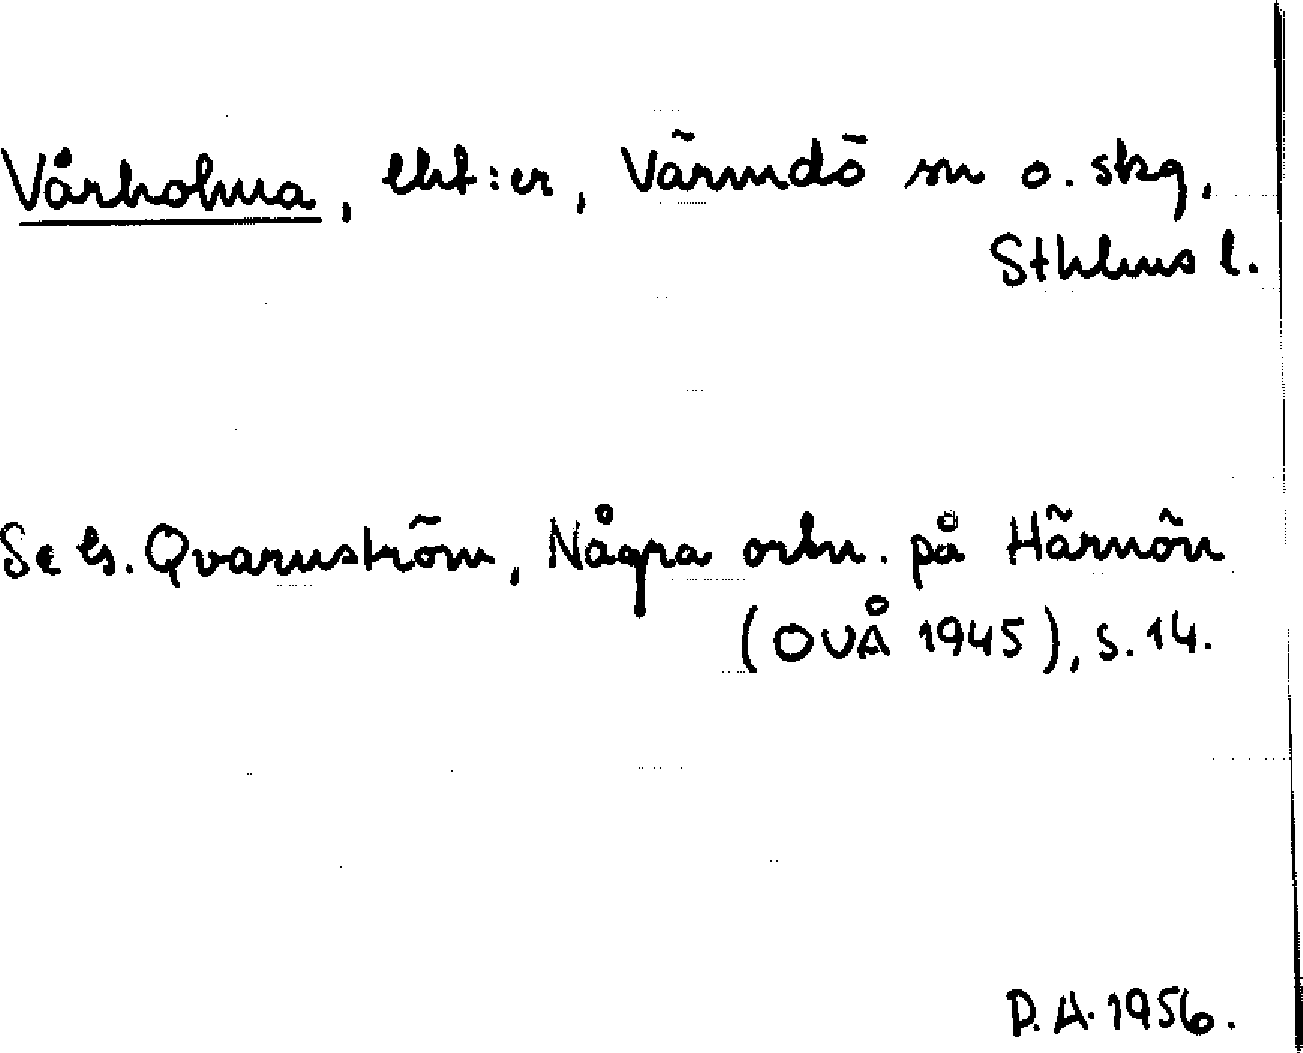 Vårholma, lht:er, Värmdö sn o. skg,
Sthlms l.
Se G. Qvarnström, Några ortn. på Härnön
(OVÅ 1945), s. 14.
D. A. 1956.